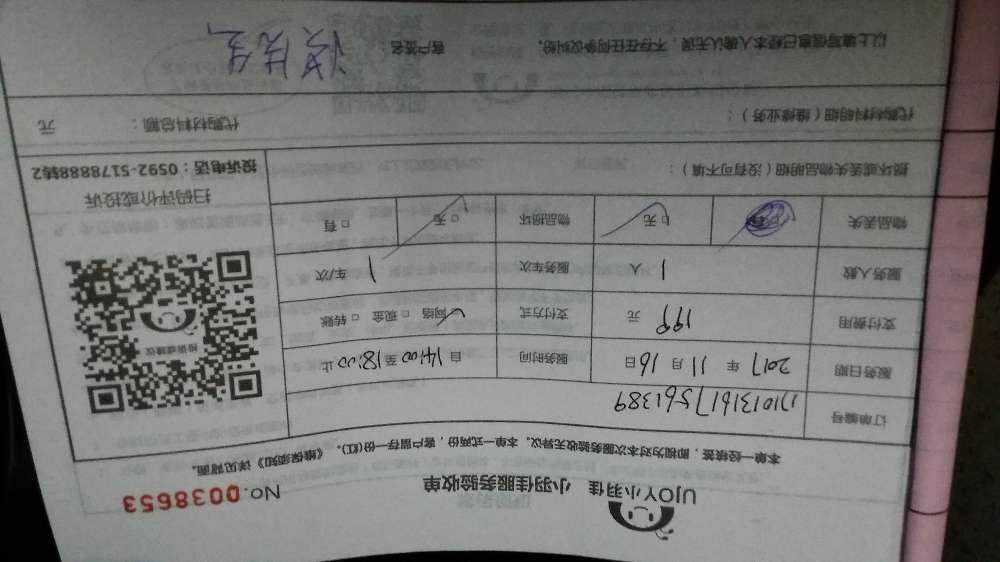 UJOY小羽佳 小羽佳服务验收单 No.0038653
本单一经核签，即视为对本次服务验收无异议。本单一式两份，客户留存一份(红)。《维保须知》详见背面。
订单编号
服务日期 2017 年 11 月 16 日 服务时间 自 14:00 至 18:00 止
支付费用 199 元 支付方式 网络 □ 现金 □ 转账
服务人数 1 人 服务车次 1 车/次
物品丢失 □ 无 物品损坏 □ 无 □ 有
投诉或建议
扫码评价或投诉
投诉电话：0592-5178888转2
损坏或丢失物品明细（没有可不填）：
代购材料明细（维修业务）： 代购材料总额： 元
以上填写信息已经本人确认无误，不存在任何争议纠纷。 客户签名： 先生